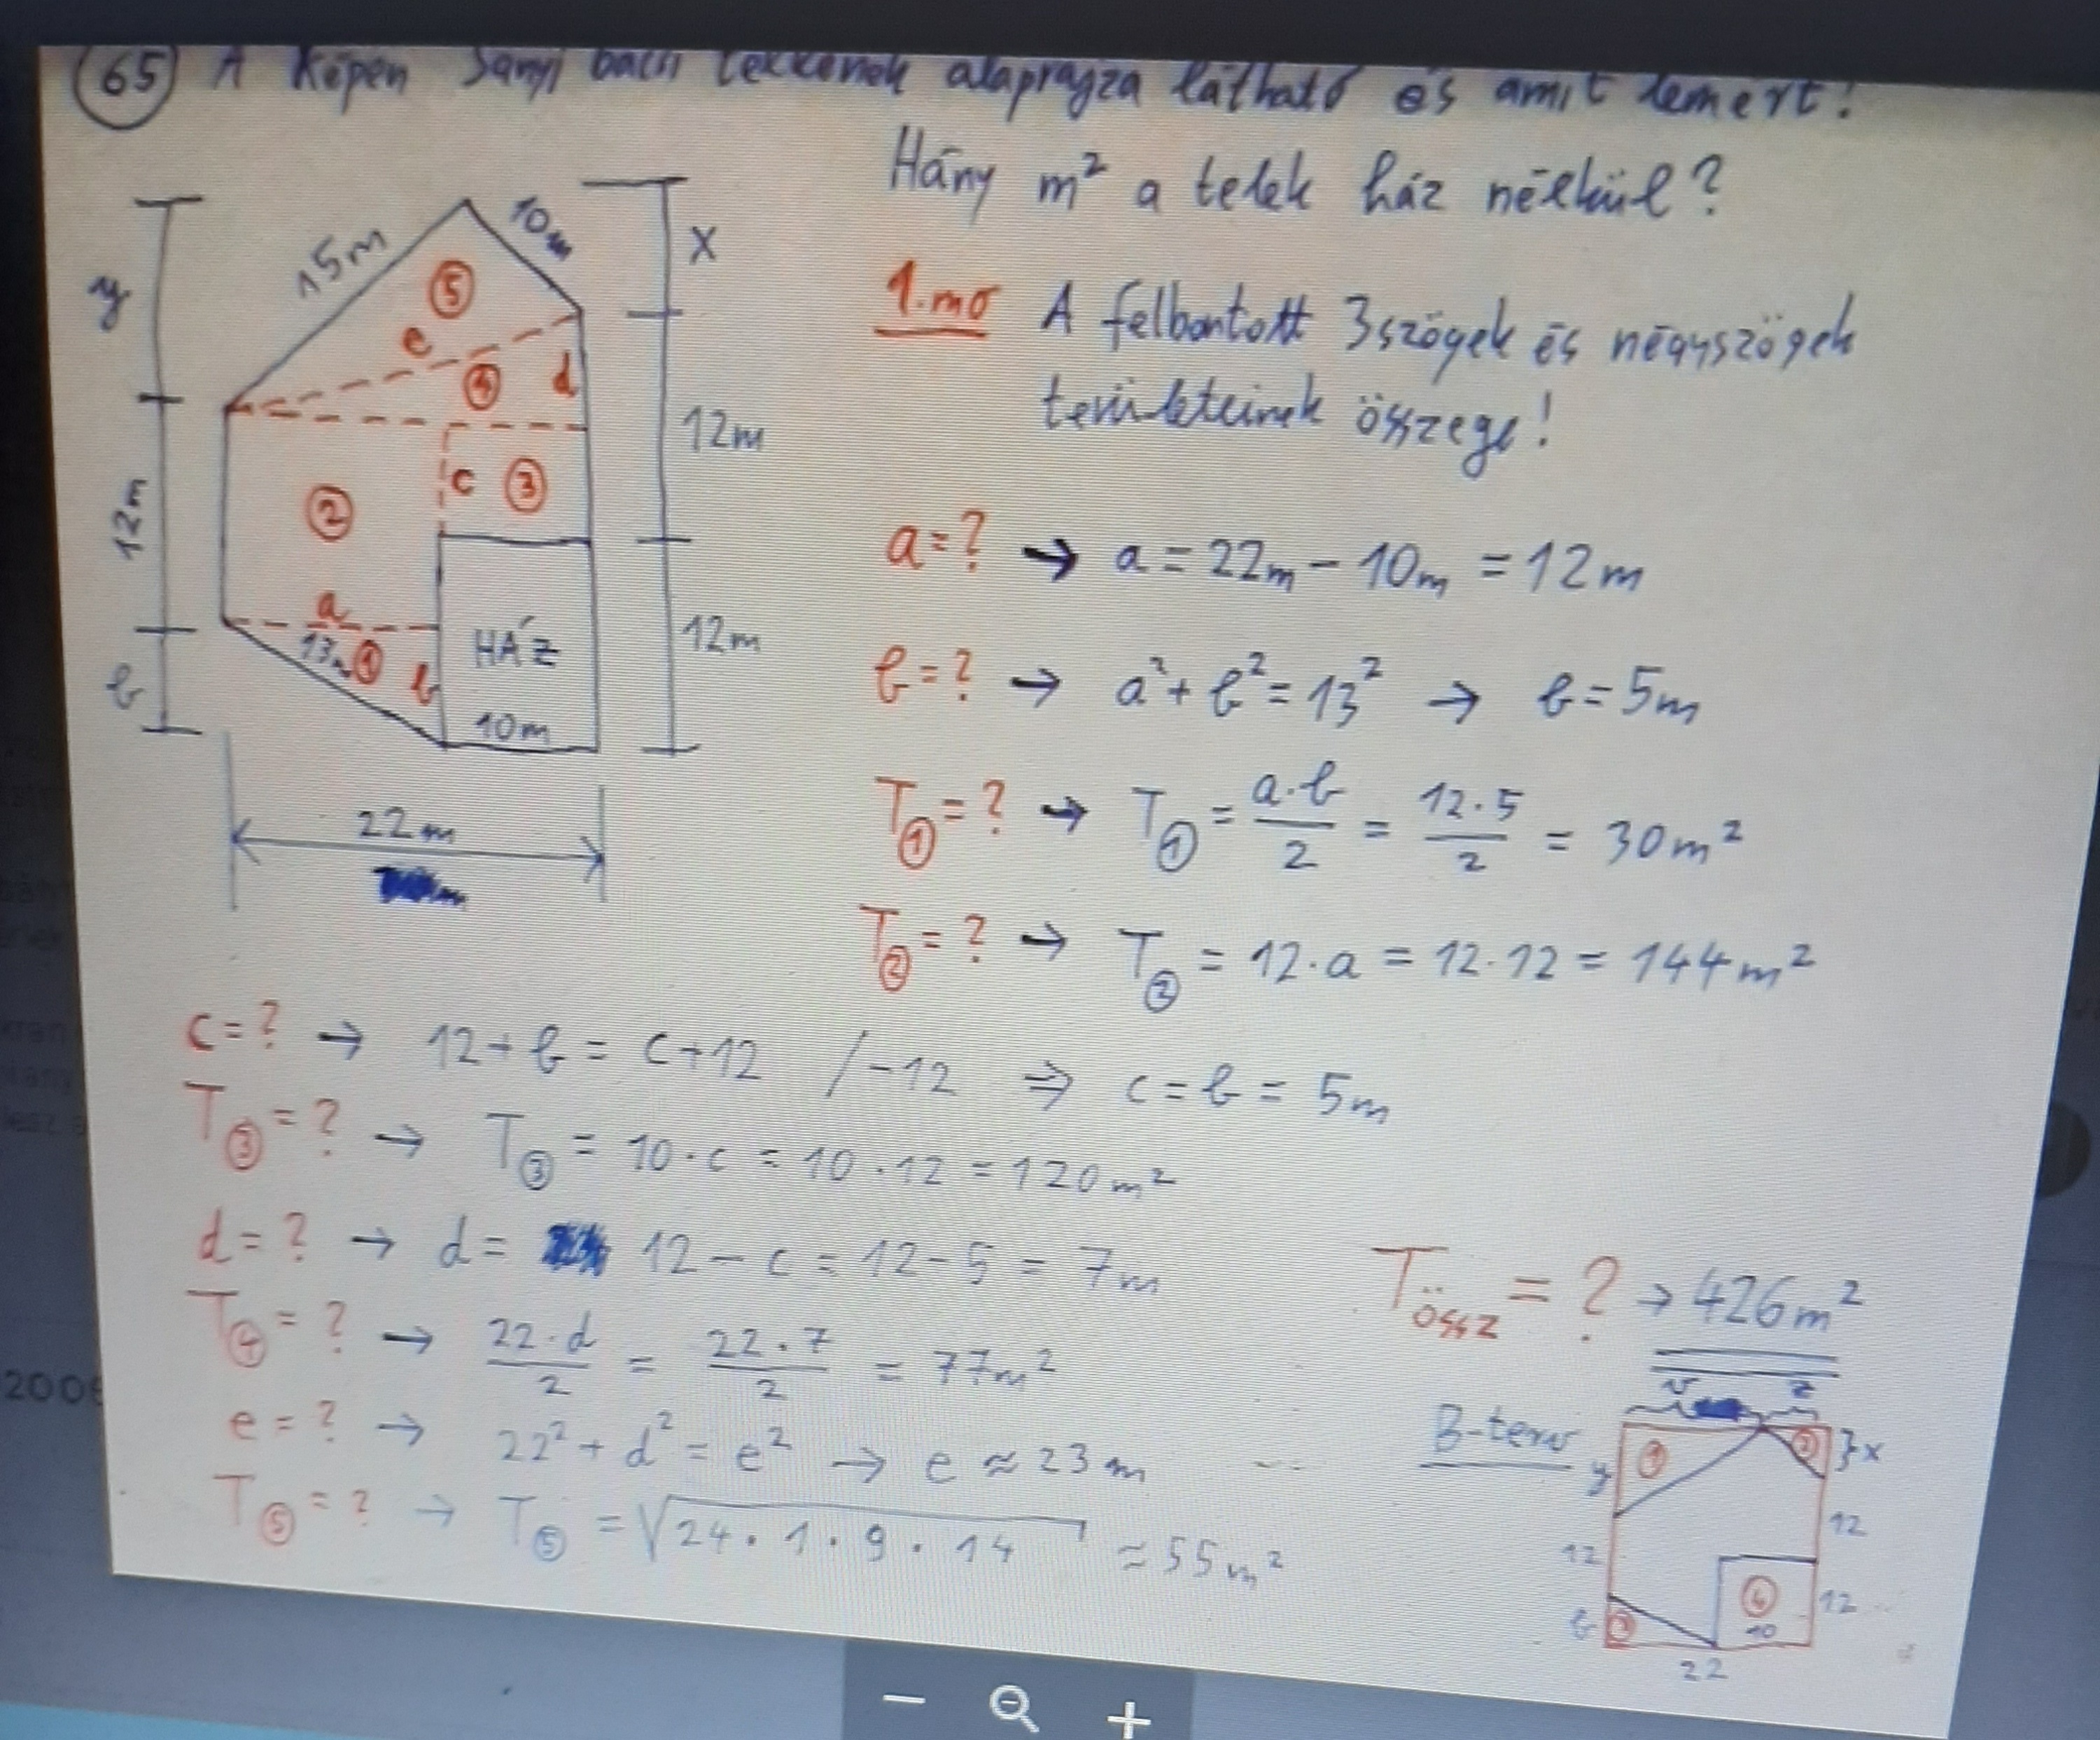 65 A képen Sanyi bácsi telkének alaprajza látható és amit lemért!
Hány m² a telek ház nélkül?
15m
10m
x
y
⑤
e
④
d
12m
c
③
②
12m
a
13m
①
b
HÁZ
12m
b
10m
22m
1.mo A felbontott 3szögek és négyszögek
területeinek összege!
a=? → a = 22m - 10m = 12m
b=? → a² + b² = 13² → b = 5m
T① = ? → T① = a·b/2 = 12·5/2 = 30m²
T② = ? → T② = 12·a = 12·12 = 144m²
c=? → 12+b = c+12 /-12 ⇒ c = b = 5m
T③ = ? → T③ = 10·c = 10·12 = 120m²
d=? → d = 12-c = 12-5 = 7m
T④ = ? → 22·d/2 = 22·7/2 = 77m²
e=? → 22² + d² = e² → e ≈ 23m
T⑤ = ? → T⑤ = √24·1·9·14 ≈ 55m²
Tössz = ? → 426m²
B-terv
z
y
①
②
x
12
12
b
③
④
12
10
22